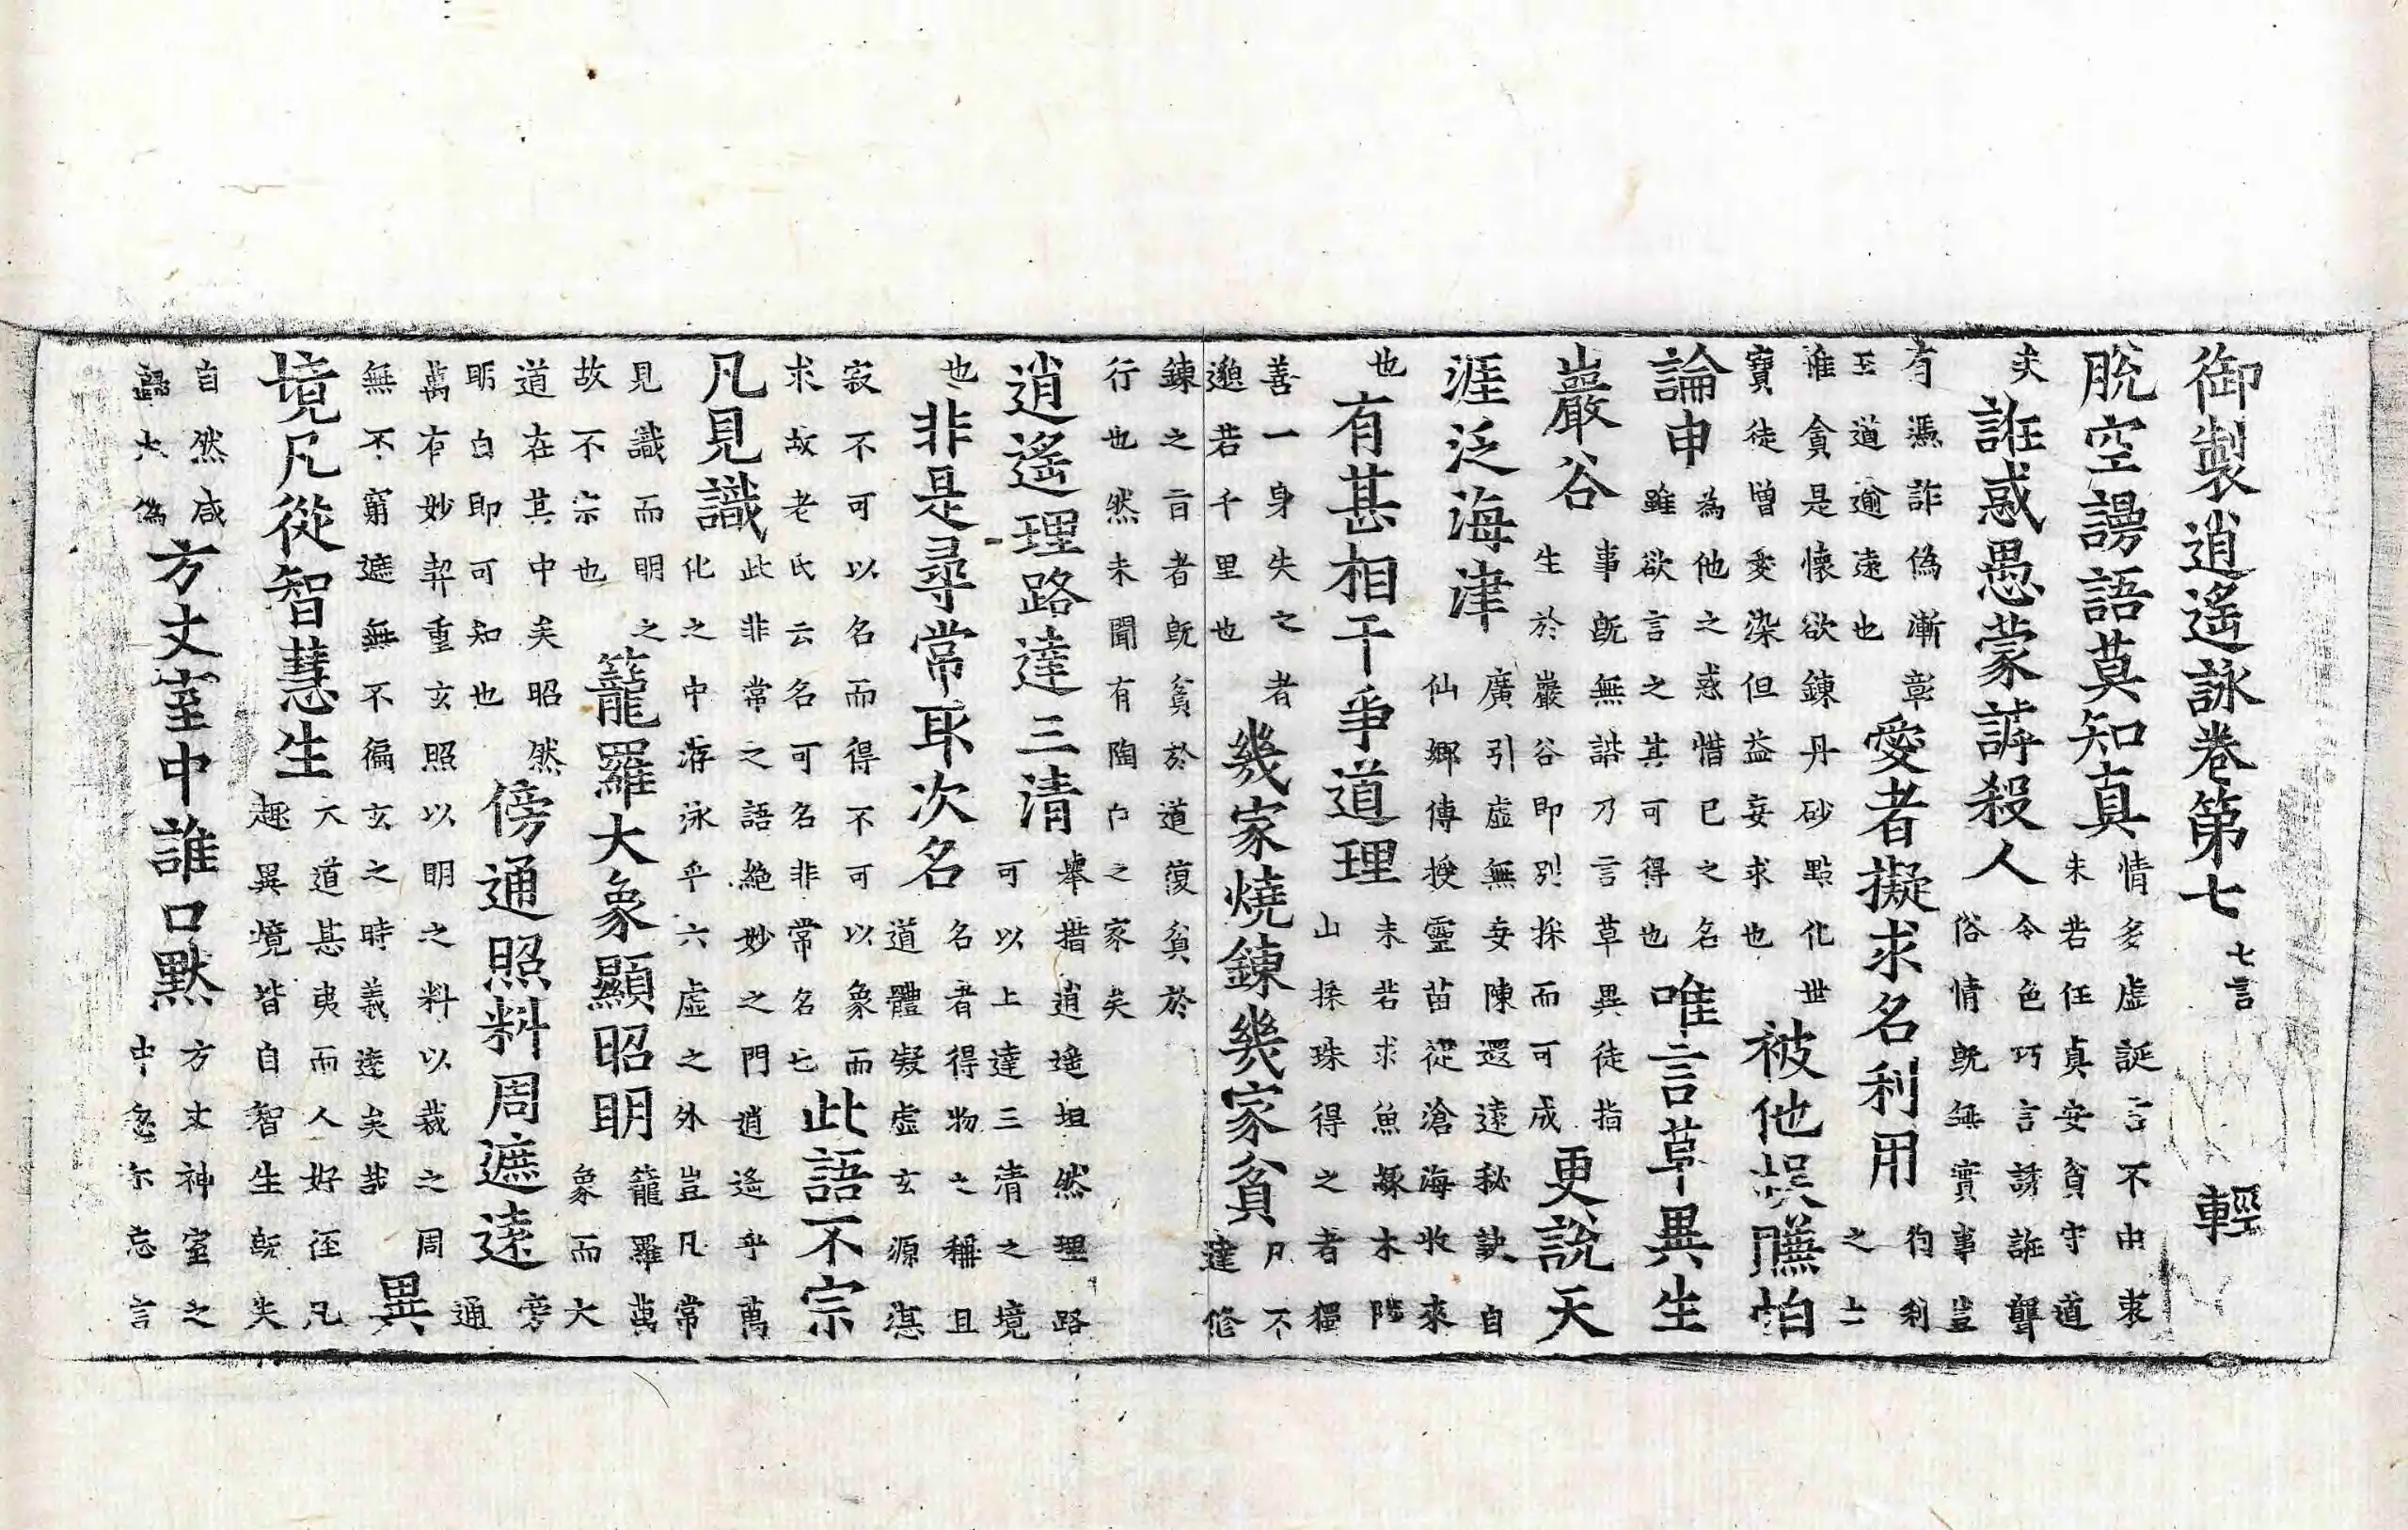 御製逍遙詠卷第七 七言 輕
脫空謾語莫知真 情多虛誕言不由衷 未若任真安貧守道
矣 誑惑愚蒙誶殺人 令色巧言誘誑聾 俗情既無實事豈
有憑詐偽漸彰 至道逾遠也 愛者擬求名利用 徇利 之士
唯貪是懷欲鍊丹砂點化世 寶徒增愛染但益妄求也 被他誤賺怕
論申 為他之惑惜己之名 雖欲言之其可得也 唯言草異生
巖谷 事既無詰乃言草異徒指 生於巖谷即別採而可成 更說天
涯泛海津 廣引虛無妄陳遐遠秘訣自 仙鄉傳授靈苗從滄海收來
也 有甚相干爭道理 未若求魚緣木階 山採珠得之者獨
善一身失之者 邈若千里也 幾家燒鍊幾家貧 凡不 達修
鍊之旨者既貧於道復貧於 行也然未聞有陶白之家矣
逍遙理路達三清 舉措逍遙坦然理路 可以上達三清之境
也 非是尋常取次名 名者得物之稱且 道體凝虛玄源湛
寂不可以名而得不可以象而 求故老氏云名可名非常名也 此語不宗
凡見識 此非常之語絕妙之門逍遙乎萬 化之中游泳乎六虛之外豈凡常
見識而明之 故不宗也 籠羅大象顯昭明 籠羅萬 象而大
道在其中矣昭然 明白即可知也 傍通照料周遮遠 旁 通
萬有妙契重玄照以明之料以裁之周 無不窮遮無不徧玄之時義遠矣哉 異
境凡從智慧生 大道甚夷而人好徑凡 趣異境皆自智生既失
自然咸 歸大偽 方丈室中誰口默 方丈神室之 中忽尔忘言